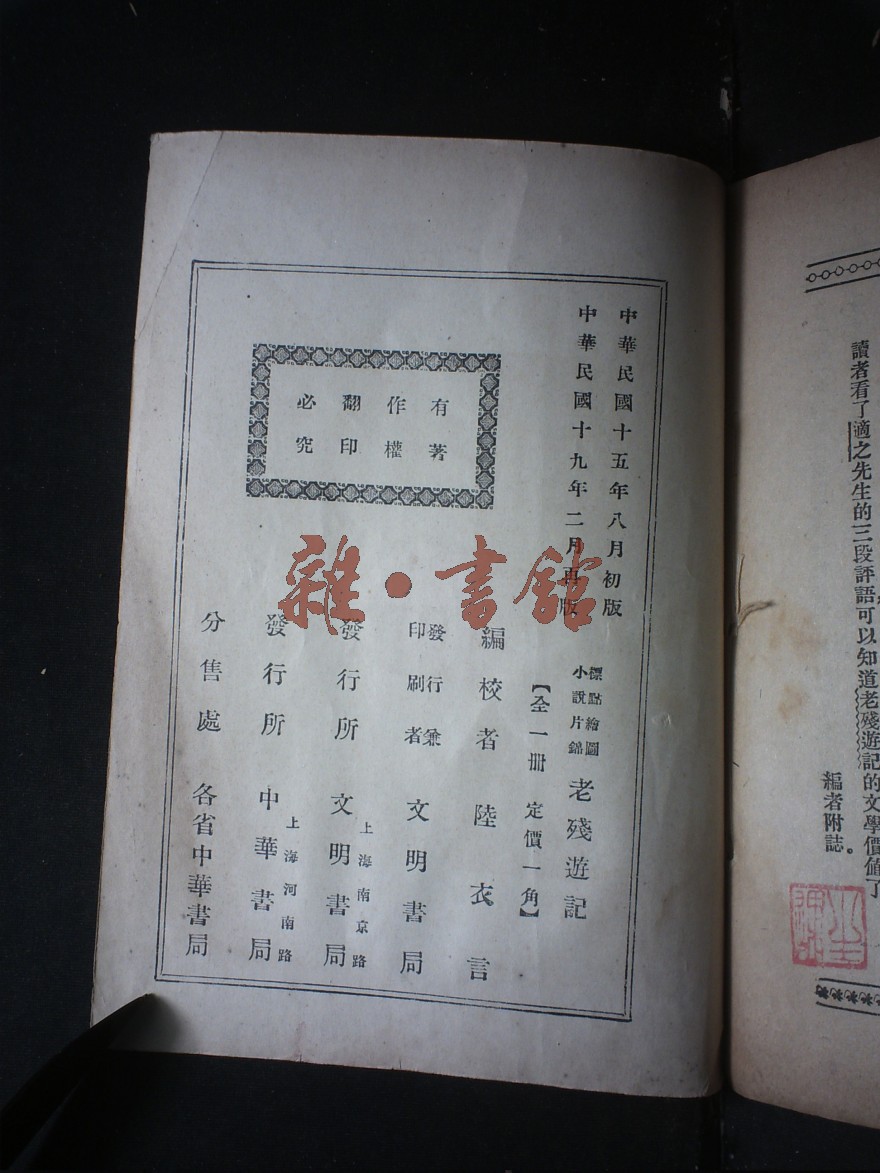 讀者看了適之先生的三段評語可以知道老殘遊記的文學價值了。
編者附誌
中華民國十五年八月初版
中華民國十九年二月再版
有著
作權
翻印
必究
標點繪圖
小說片錦
老殘遊記
【全一冊 定價一角】
編校者 陸衣言
發行兼
印刷者
文明書局
發行所
上海南京路
文明書局
發行所
上海河南路
中華書局
分售處 各省中華書局
雜·書館